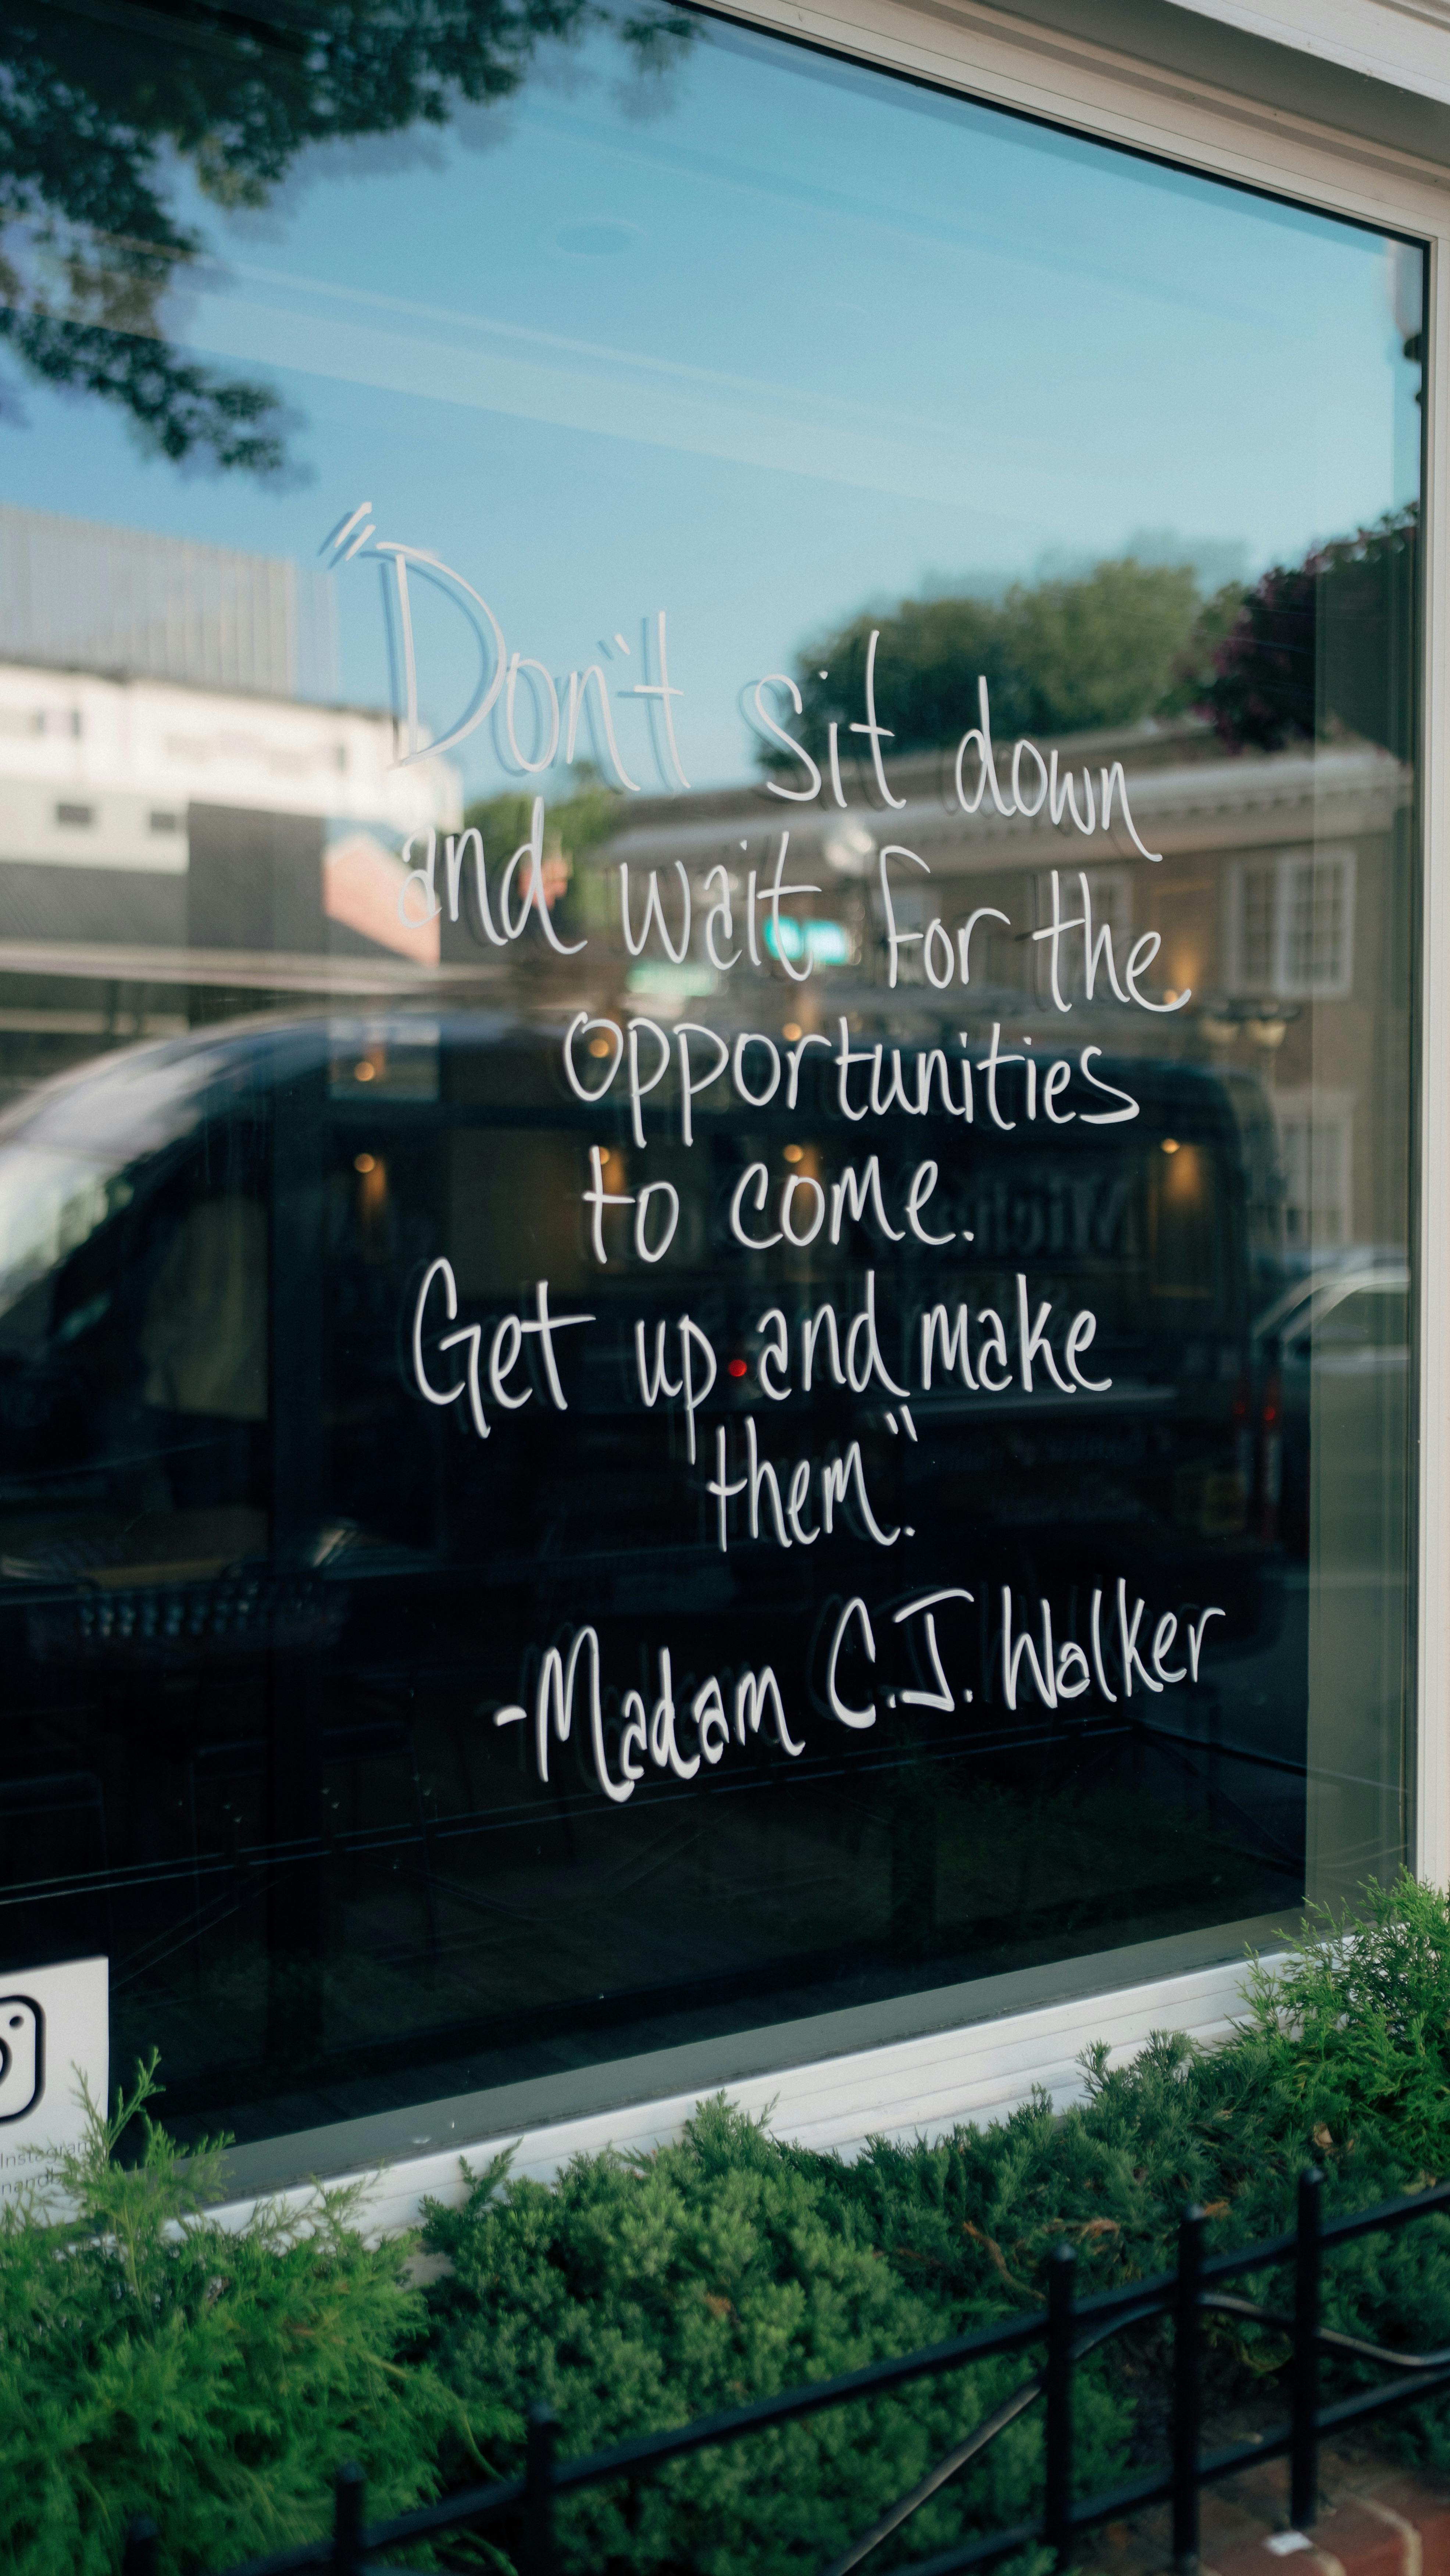 "Don't sit down
and wait for the
opportunities
to come.
Get up and make
them."
-Madam C.J. Walker
Instagram